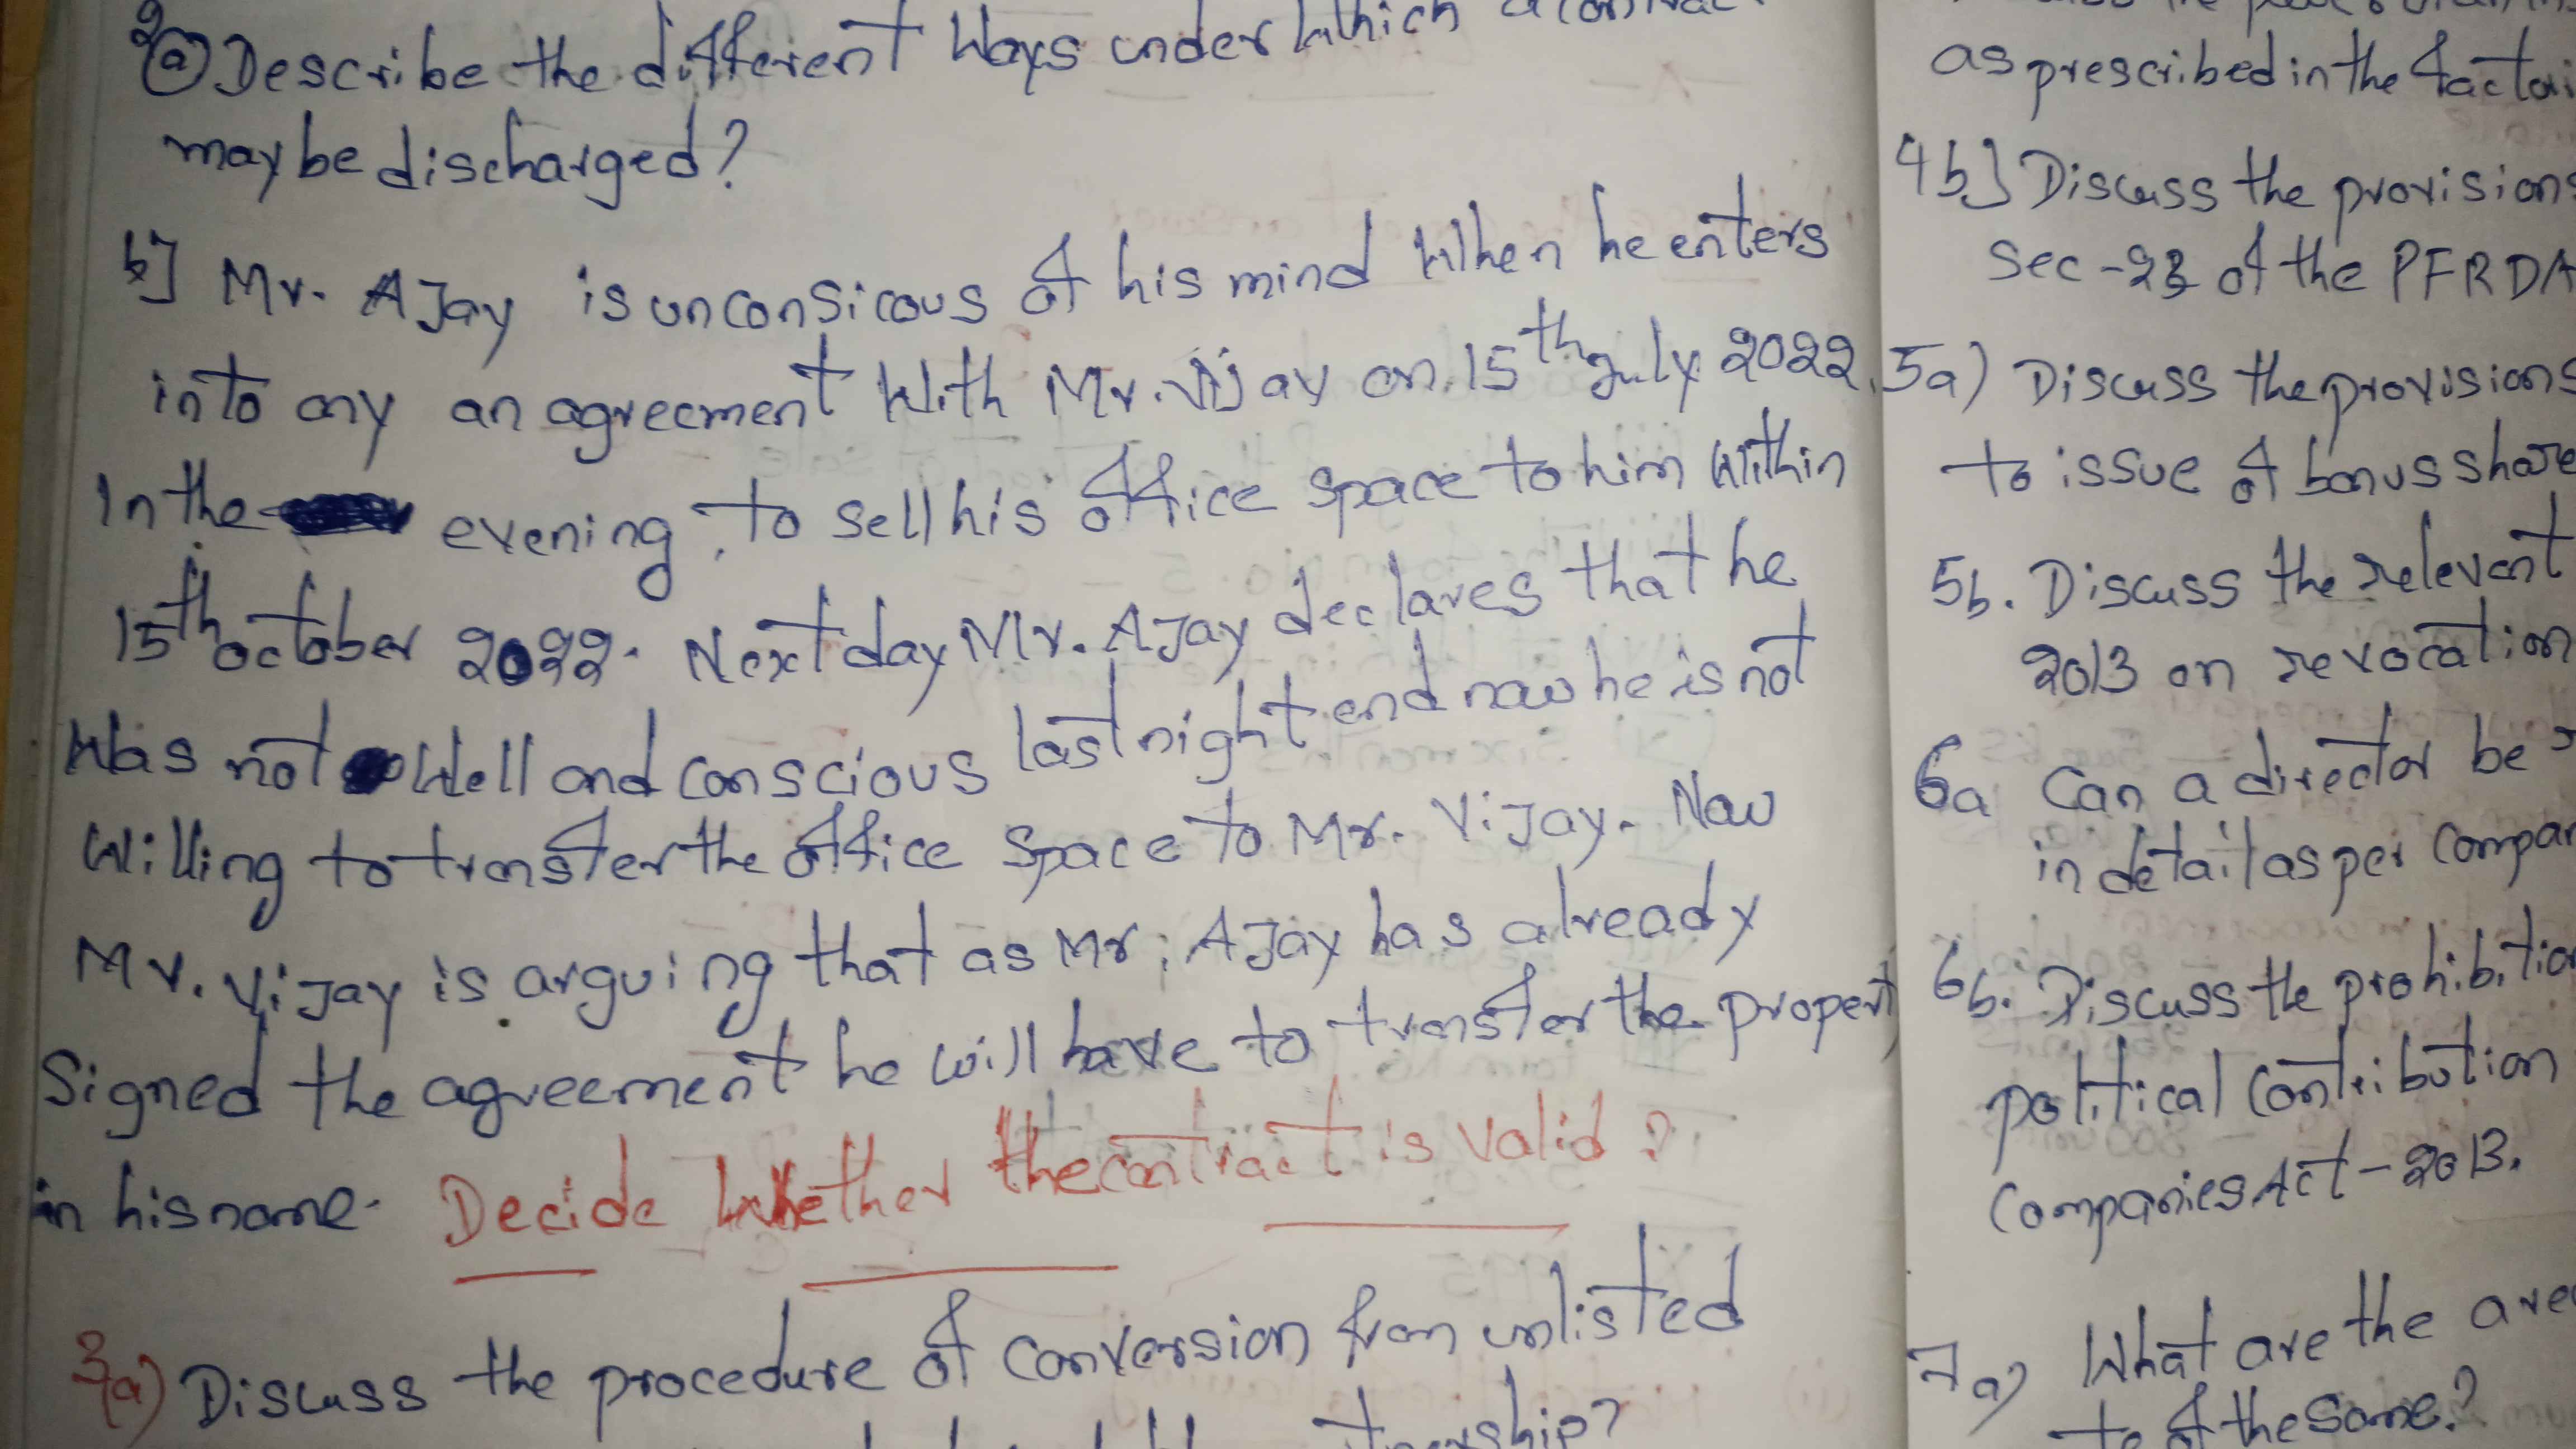 2
(a) Describe the different Ways under Which a contrac
may be discharged?
b] Mr. AJay is unconsicous of his mind When he enters
into any an agreement With Mr. Vijay on 15th July 2022.
In the evening, to sell his office space to him Within
15th october 2022. Next day Mr. AJay declares that he
Was not Well and conscious last night and now he is not
Willing to transfer the office space to Mr. ViJay. Now
Mr. ViJay is arguing that as Mr. AJay has already
Signed the agreement he will have to transfer the propert
in his name. Decide Whether the contract is valid?
3(a) Discuss the procedure of conversion from unlisted
as prescribed in the factori
4b.] Discuss the provisions
Sec-23 of the PFRDA
5a) Discuss the provisions
to issue of bonus share
5b. Discuss the relevent
2013 on revocation
6a Can a director be
in detail as per compan
6b. Discuss the prohibition
political contribution
Companies Act-2013.
7a) What are the ave
to of the same?